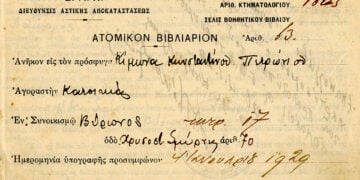 ΔΙΕΥΘΥΝΣΙΣ ΑΣΤΙΚΗΣ ΑΠΟΚΑΤΑΣΤΑΣΕΩΣ
ΑΡΙΘ. ΚΤΗΜΑΤΟΛΟΓΙΟΥ
ΣΕΛΙΣ ΒΟΗΘΗΤΙΚΟΥ ΒΙΒΛΙΟΥ
ΑΤΟΜΙΚΟΝ ΒΙΒΛΙΑΡΙΟΝ Ἀριθ. 63.
Ἀνῆκον εἰς τὸν πρόσφυγα Κίμωνα Κωνσταντίνου
Ἀγοραστὴν Κατοικίας
Ἐν Συνοικισμῷ Βύρωνος τετρ. 17
ὁδὸς Χρυσοστ. Σμύρνης ἀριθ. 70
Ἡμερομηνία ὑπογραφῆς προσυμφώνου 4 1929